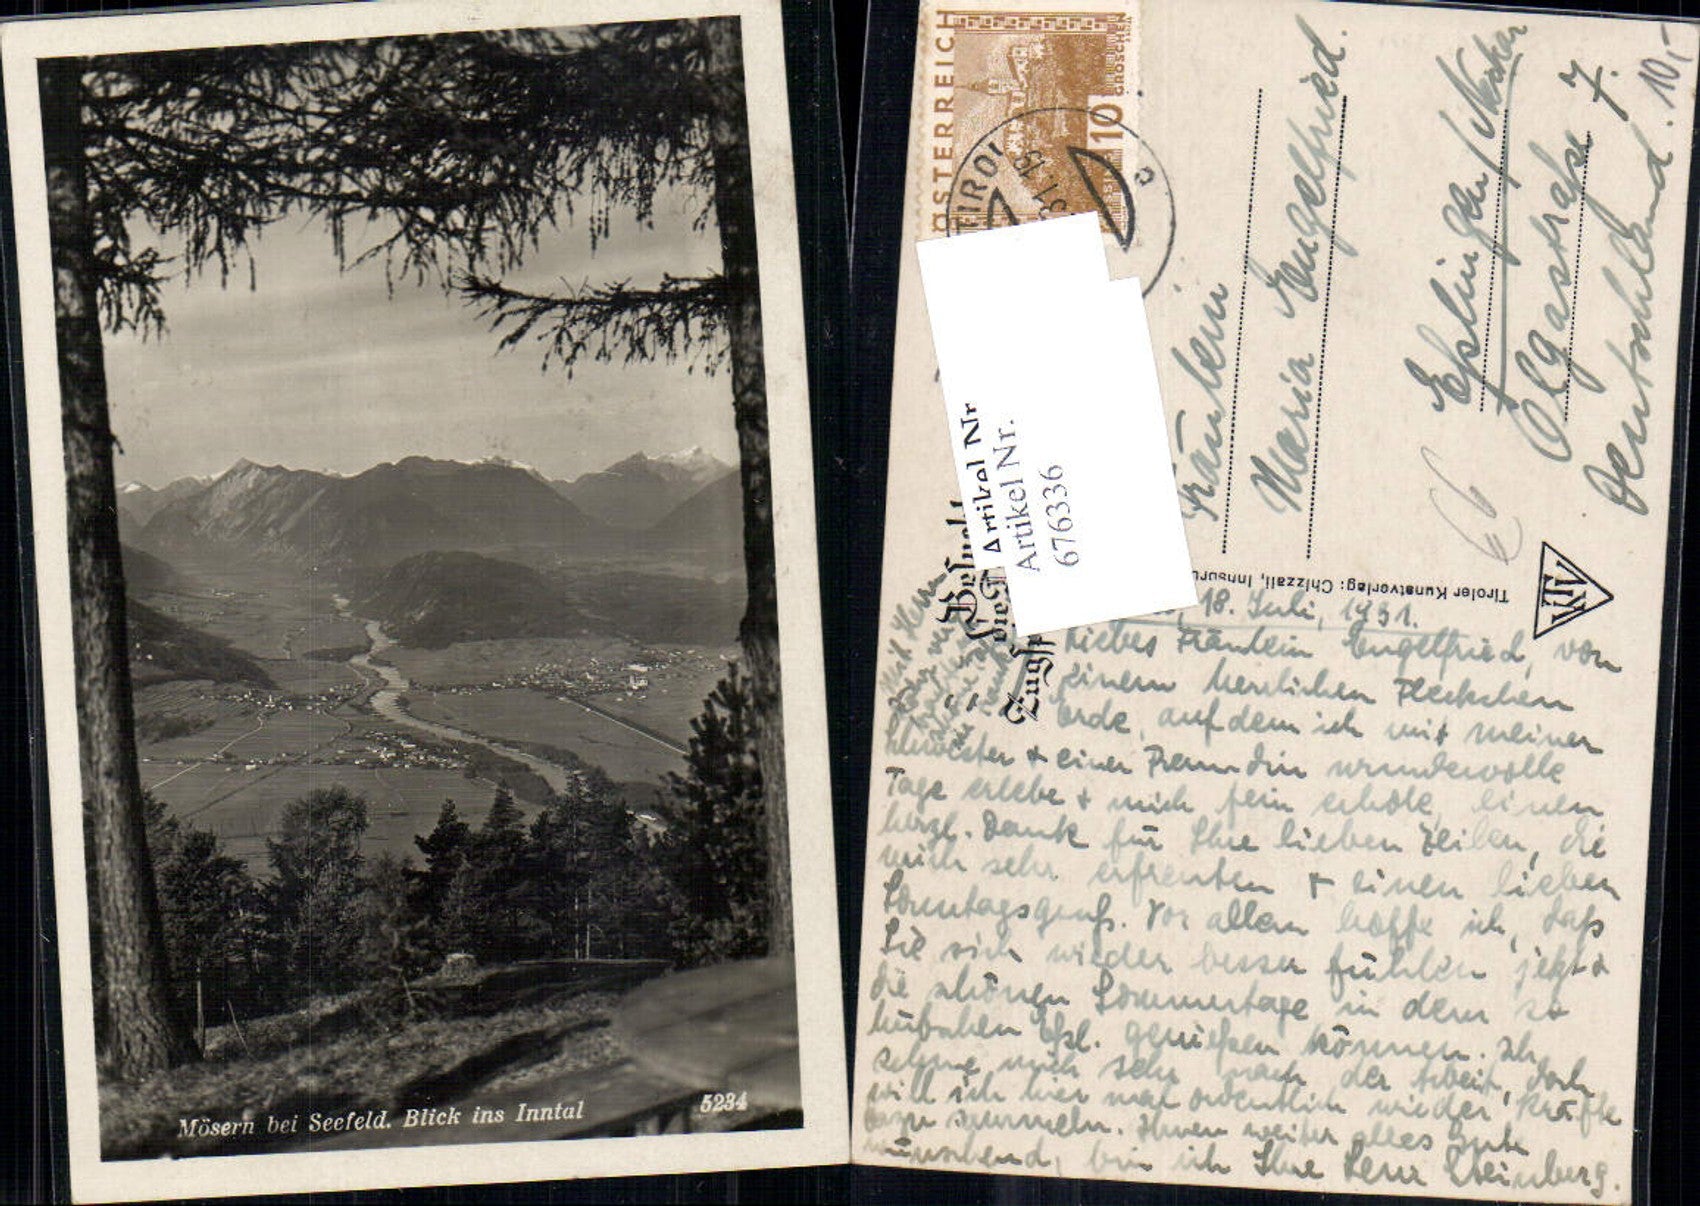 Mösern bei Seefeld. Blick ins Inntal
5234
ÖSTERREICH
10
GROSCHEN
TIROL
Artikel Nr
Artikel Nr.
676336
Fräulein
Maria Engelfried.
Eßlingen/Neckar
Olgastraße 7.
Deutschland.
10,-
Tiroler Kunstverlag: Chizzali, Innsbru
18. Juli, 1931.
Liebes Fräulein Engelfried, von
einem herrlichen Fleckchen
Erde, auf dem ich mit meiner
Schwester + einer Freundin wundervolle
Tage erlebe + mich fein erhole, einen
herzl. Dank für Ihre lieben Zeilen, die
mich sehr erfreuten + einen lieben
Sonntagsgruß. Vor allem hoffe ich, daß
Sie sich wieder besser fühlen jetzt +
die schönen Sommertage in dem so
hübschen Eßl. genießen können. Ich
sehne mich sehr nach der Arbeit, doch
will ich hier mal ordentlich wieder Kräfte
dazu sammeln. Ihnen weiter alles Gute
wünschend, bin ich Ihre Steinberg.